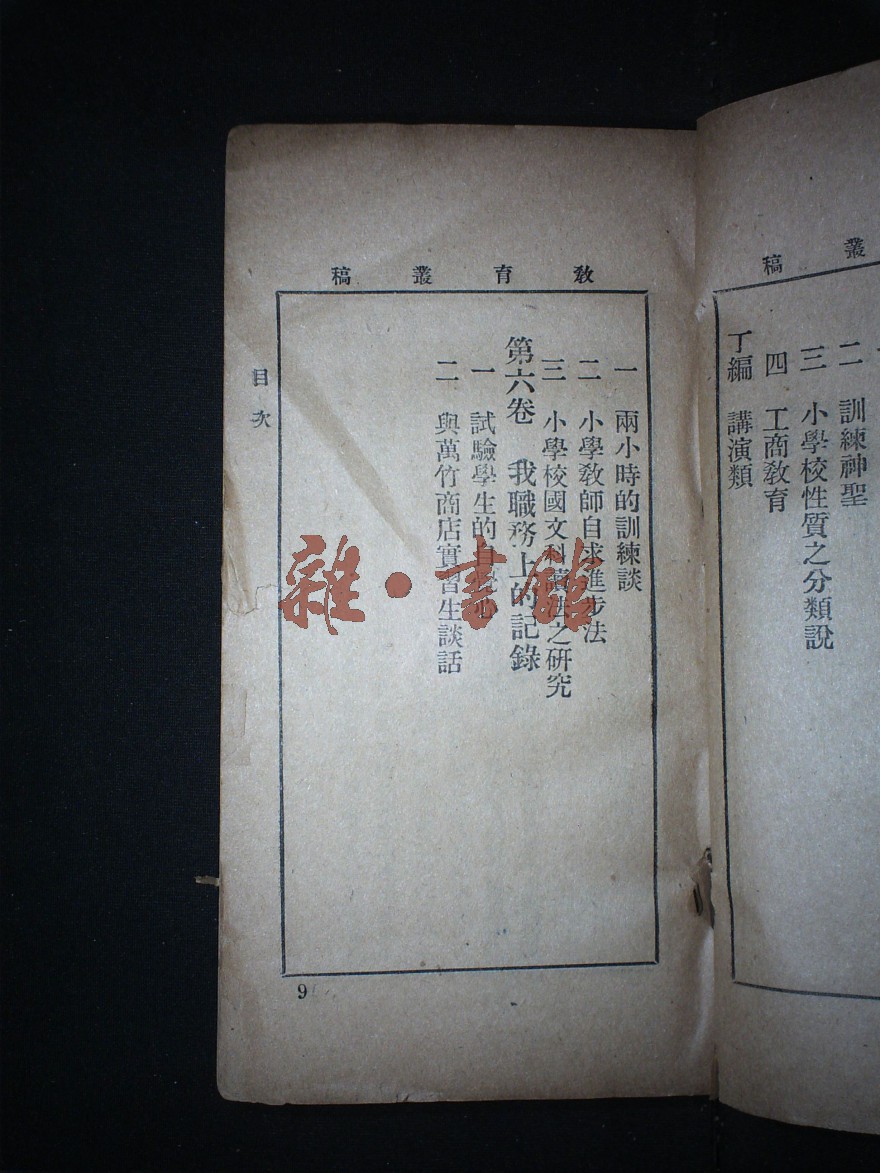 叢稿
二 訓練神聖
三 小學校性質之分類說
四 工商教育
丁編 講演類
教育叢稿
一 兩小時的訓練談
二 小學教師自求進步法
三 小學校國文科讀法之研究
第六卷 我職務上的記錄
一 試驗學生的自 心
二 與萬竹商店實習生談話
目次
9
雜·書館